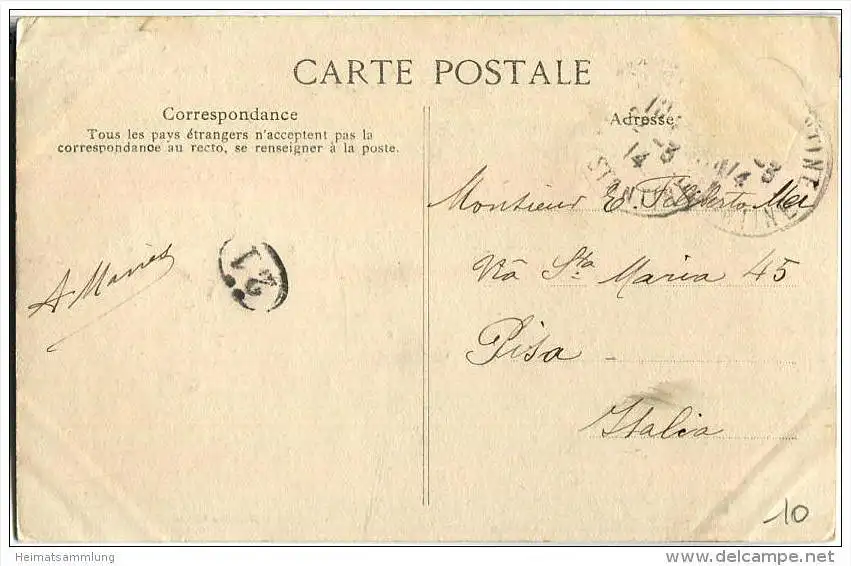 CARTE POSTALE
Correspondance
Tous les pays étrangers n'acceptent pas la
correspondance au recto, se renseigner à la poste.
Adresse
14
14
STINE
Monsieur E. Filiberto Mei
Via Sta Maria 45
Pisa
Italia
A.
21
10
Heimatsammlung
www.delcampe.net